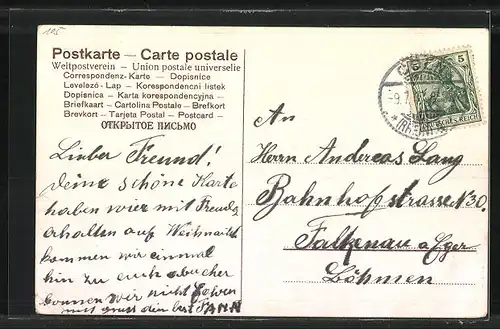 105
Postkarte — Carte postale
Weltpostverein — Union postale universelle
Correspondenz-Karte — Dopisnice
Levelező-Lap — Korespondencni listek
Dopisnica — Karta korespondencyjna —
Briefkaart — Cartolina Postale — Brefkort
Brevkort — Tarjeta Postal — Postcard —
ОТКРЫТОЕ ПИСЬМО
5
DEUTSCHES REICH
-9.7.
An
Herrn Andereas Lang
Bahnhofstrasse N 30.
Falkenau a Eger
Böhmen
Lieber Freund!
Deine schöne Karte
haben wier mit Freude
erhallen auf Weihnacht
kommen wir einmal
hin zu euch
können wir nicht
mit gruss dein best